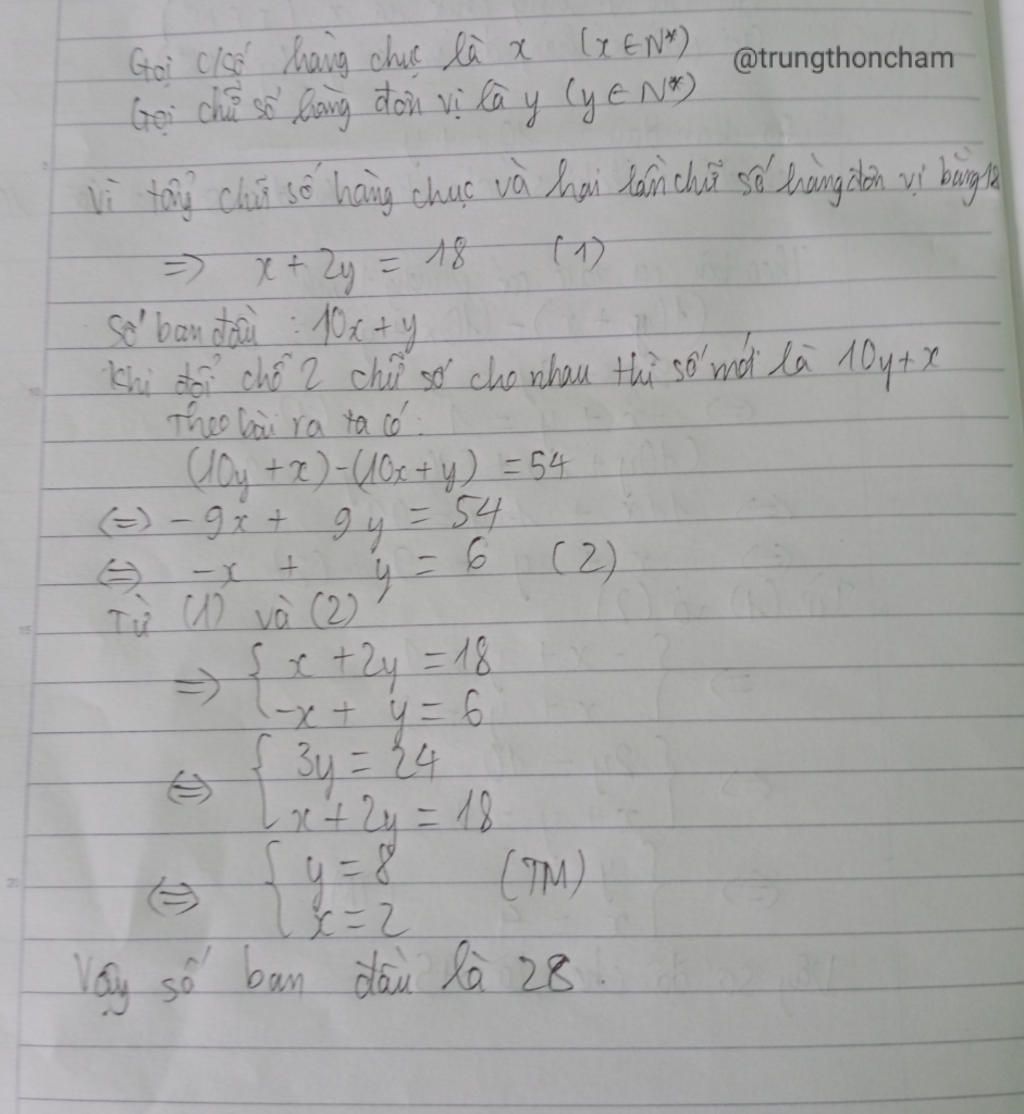 Gọi c/số hàng chục là x (x ∈ N*)
@trungthoncham
Gọi chữ số hàng đơn vị là y (y ∈ N*)
Vì tổng chữ số hàng chục và hai lần chữ số hàng đơn vị bằng 18
=> x + 2y = 18 (1)
Số ban đầu : 10x + y
Khi đổi chỗ 2 chữ số cho nhau thì số mới là 10y + x
Theo bài ra ta có :
(10y + x) - (10x + y) = 54
<=> - 9x + 9y = 54
<=> -x + y = 6 (2)
Từ (1) và (2)
=> { x + 2y = 18
-x + y = 6
<=> { 3y = 24
x + 2y = 18
<=> { y = 8 (TM)
x = 2
Vậy số ban đầu là 28.